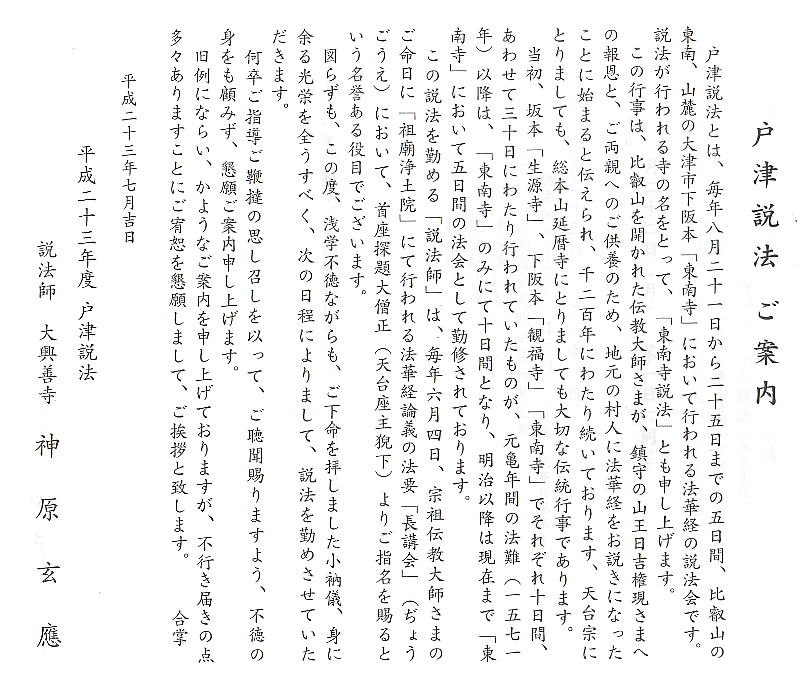 戸津説法 ご案内
戸津説法とは、毎年八月二十一日から二十五日までの五日間、比叡山の
東南、山麓の大津市下阪本「東南寺」において行われる法華経の説法会です。
説法が行われる寺の名をとって、「東南寺説法」とも申し上げます。
この行事は、比叡山を開かれた伝教大師さまが、鎮守の山王日吉権現さまへ
の報恩と、ご両親へのご供養のため、地元の村人に法華経をお説きになった
ことに始まると伝えられ、千二百年にわたり続いております、天台宗に
とりましても、総本山延暦寺にとりましても大切な伝統行事であります。
当初、坂本「生源寺」、下阪本「観福寺」「東南寺」でそれぞれ十日間、
あわせて三十日にわたり行われていたものが、元亀年間の法難（一五七一
年）以降は、「東南寺」のみにて十日間となり、明治以降は現在まで「東
南寺」において五日間の法会として勤修されております。
この説法を勤める「説法師」は、毎年六月四日、宗祖伝教大師さまの
ご命日に「祖廟浄土院」にて行われる法華経論義の法要「長講会」（ぢょう
ごうえ）において、首座探題大僧正（天台座主猊下）よりご指名を賜ると
いう名誉ある役目でございます。
図らずも、この度、浅学不徳ながらも、ご下命を拝しました小衲儀、身に
余る光栄を全うすべく、次の日程によりまして、説法を勤めさせていた
だきます。
何卒ご指導ご鞭撻の思し召しを以って、ご聴聞賜りますよう、不徳の
身をも顧みず、懇願ご案内申し上げます。
旧例にならい、かようなご案内を申し上げておりますが、不行き届きの点
多々ありますことにご宥恕を懇願しまして、ご挨拶と致します。 合掌
平成二十三年七月吉日
平成二十三年度 戸津説法
説法師 大興善寺 神原玄應